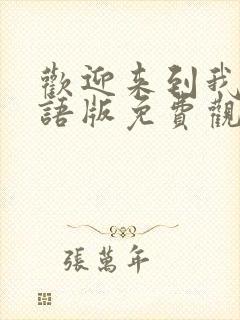 歡迎来到我
語版免費觀
張萬年